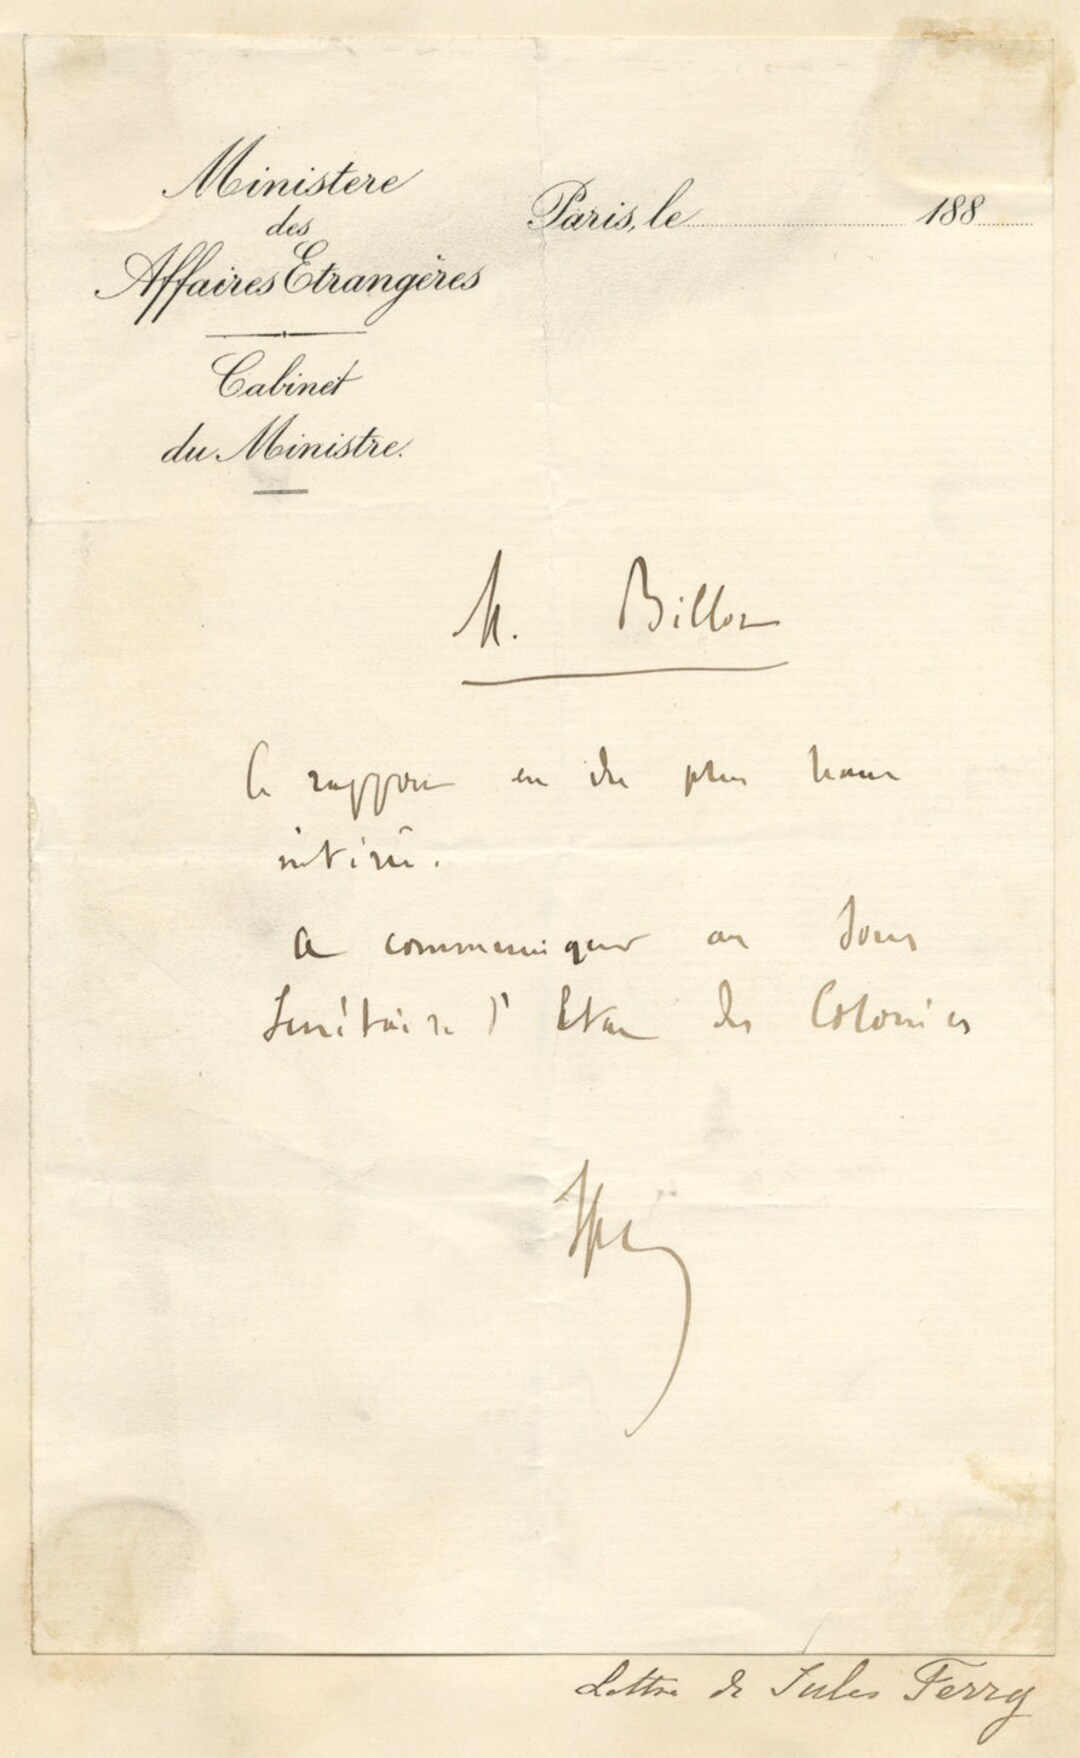 Ministère
des
Affaires Etrangères
Cabinet
du Ministre.
Paris, le 188
M. Billot
Ce rapport est du plus haut
intérêt.
A communiquer au Sous
Secrétaire d'Etat des Colonies
Lettre de Jules Ferry